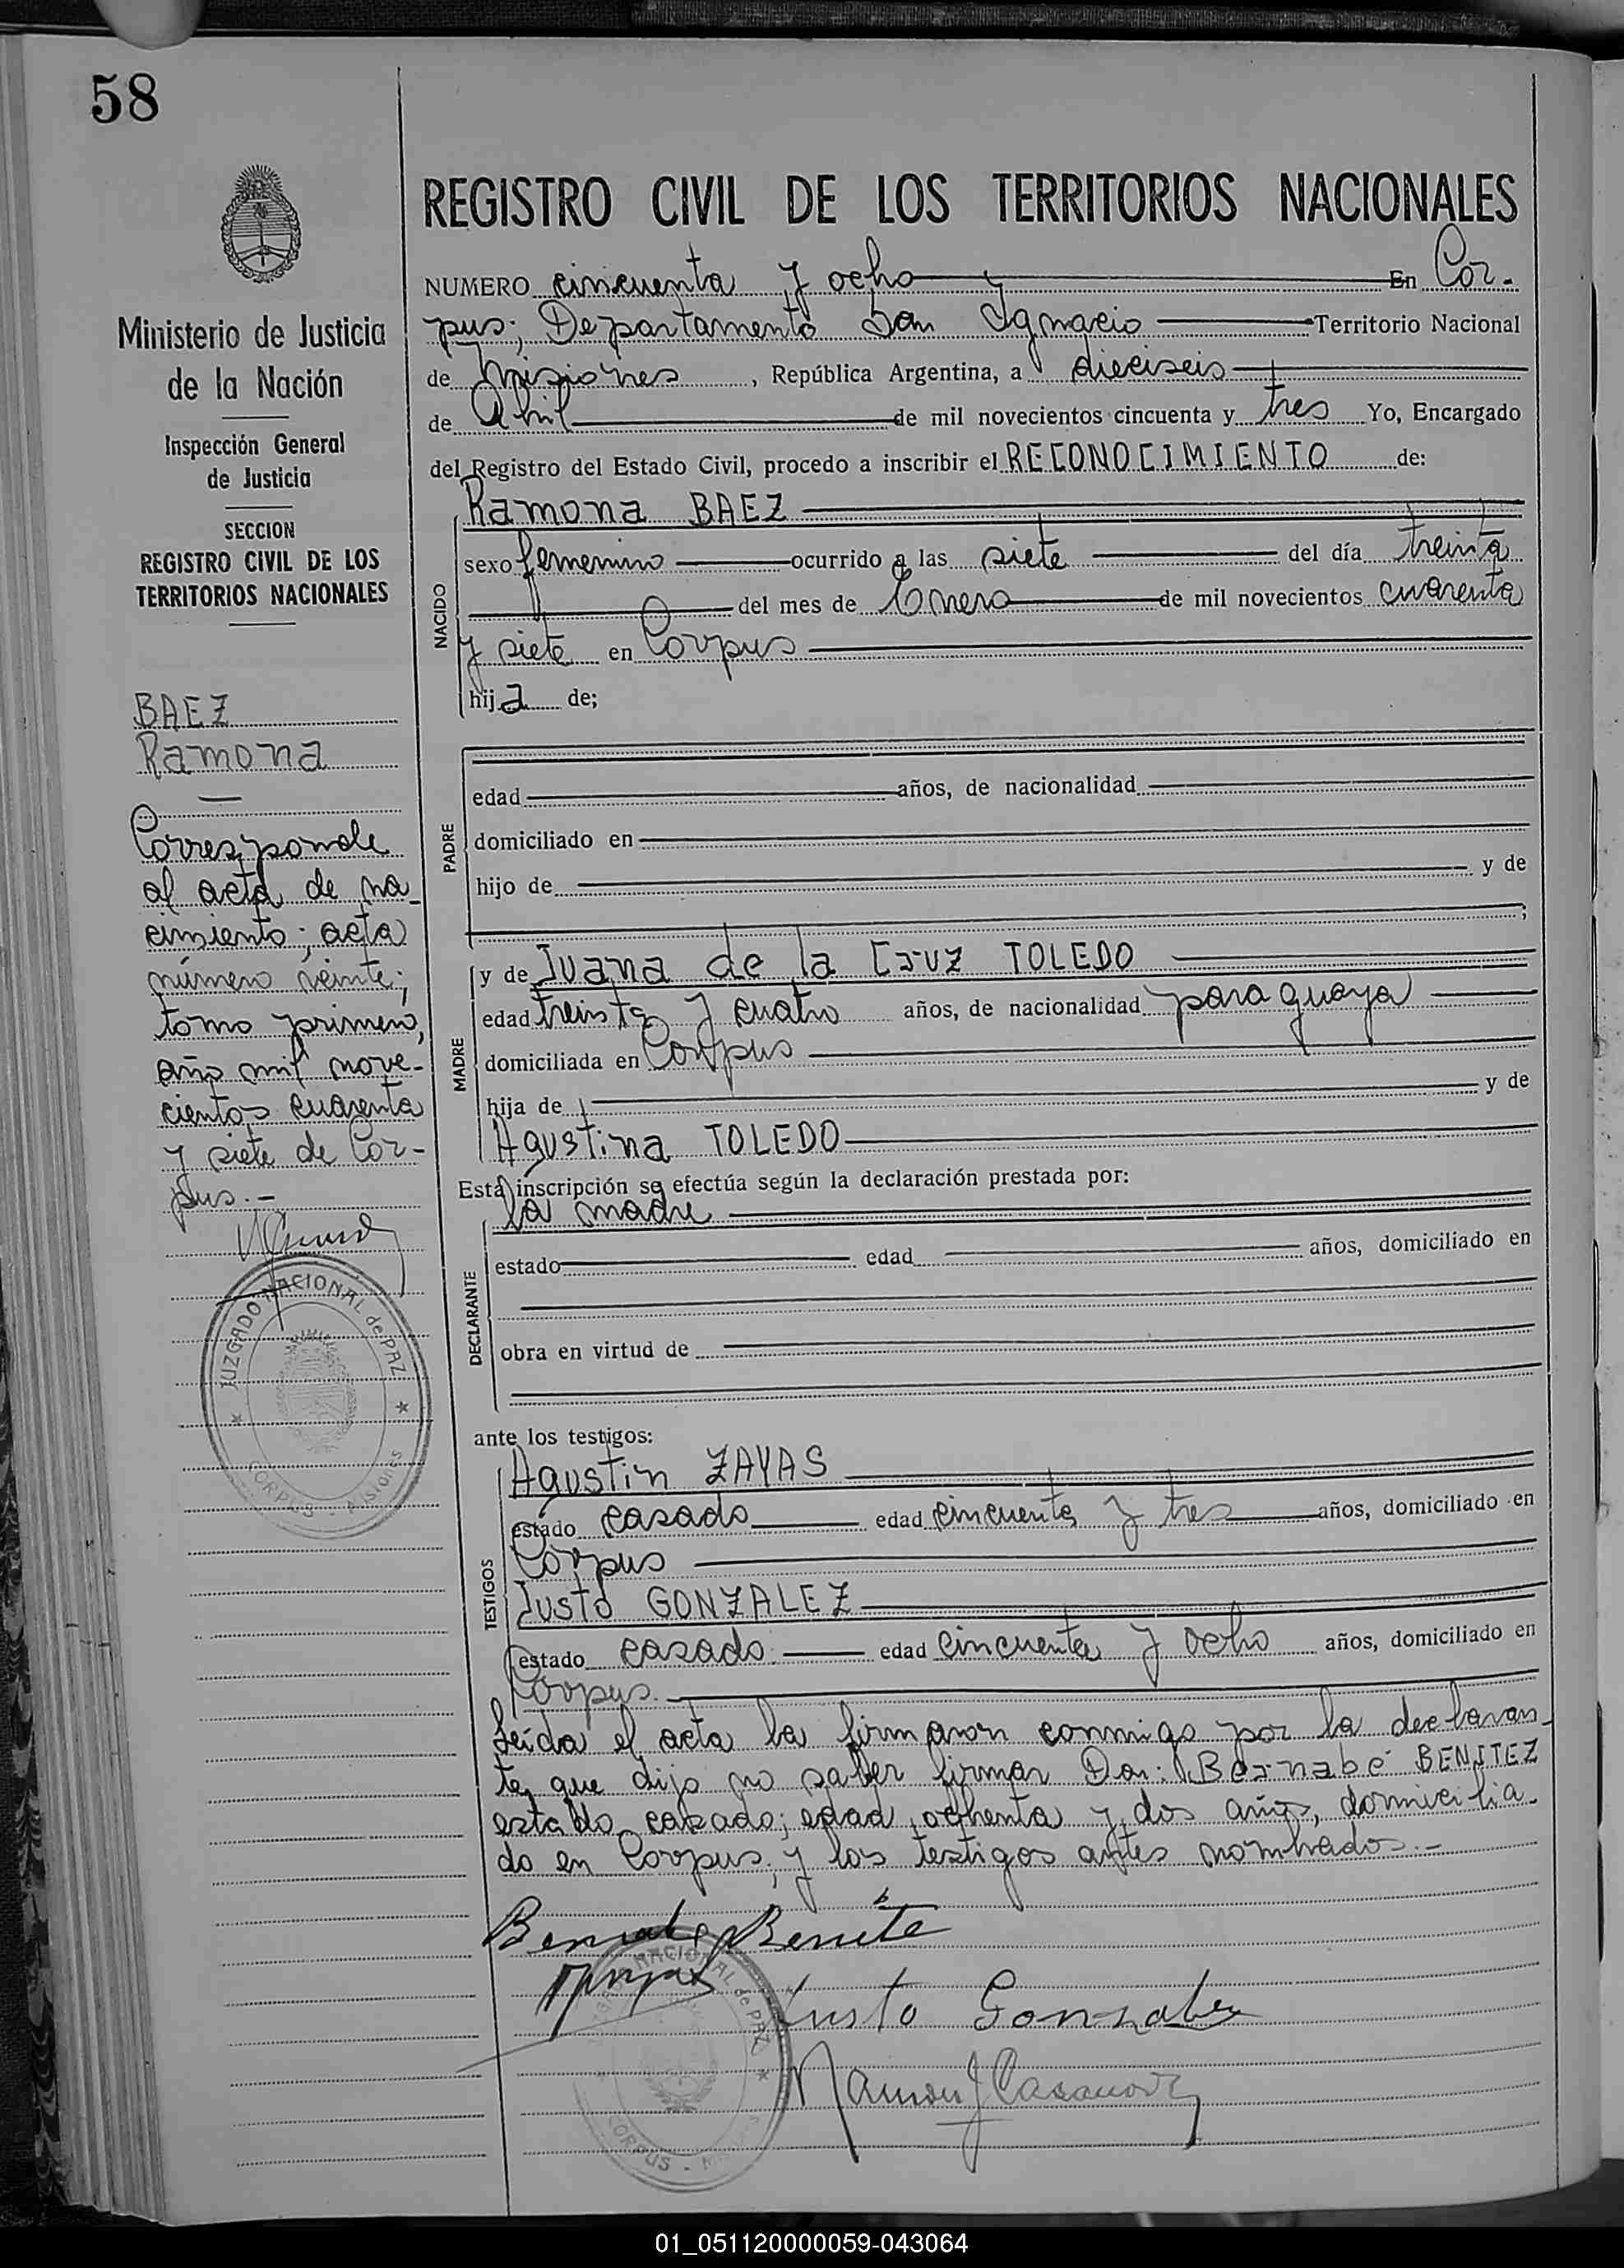 58
REGISTRO CIVIL DE LOS TERRITORIOS NACIONALES
Ministerio de Justicia
de la Nación
Inspección General
de Justicia
SECCION
REGISTRO CIVIL DE LOS
TERRITORIOS NACIONALES
BAEZ
Ramona
Corresponde
al acta de na-
cimiento; acta
número veinte;
tomo primero,
año mil nove-
cientos cuarenta
y siete de Cor-
pus.-
JUZGADO NACIONAL de PAZ
CORPUS - Misiones
NUMERO cincuenta y ocho En Cor-
pus; Departamento San Ignacio Territorio Nacional
de Misiones, República Argentina, a dieciseis
de Abril de mil novecientos cincuenta y tres Yo, Encargado
del Registro del Estado Civil, procedo a inscribir el RECONOCIMIENTO de:
NACIDO
Ramona BAEZ
sexo femenino ocurrido a las siete del día treinta
del mes de Enero de mil novecientos cuarenta
y siete en Corpus
hija de;
PADRE
edad años, de nacionalidad
domiciliado en
hijo de y de
;
MADRE
y de Juana de la Cruz TOLEDO
edad treinta y cuatro años, de nacionalidad paraguaya
domiciliada en Corpus
hija de y de
Agustina TOLEDO
Esta inscripción se efectúa según la declaración prestada por:
DECLARANTE
la madre
estado edad años, domiciliado en
obra en virtud de
ante los testigos:
TESTIGOS
Agustin ZAYAS
estado casado edad cincuenta y tres años, domiciliado en
Corpus
Justo GONZALEZ
estado casado edad cincuenta y ocho años, domiciliado en
Corpus.
Leída el acta la firmaron conmigo por la declaran-
te, que dijo no saber firmar Don: Bernabé BENITEZ
estado casado; edad ochenta y dos años, domicilia-
do en Corpus; y los testigos antes nombrados.-
Bernabe Benite
Justo Gonzalez
Ramon J Casanova
NACIONAL de PAZ
CORPUS - M
01_051120000059-043064